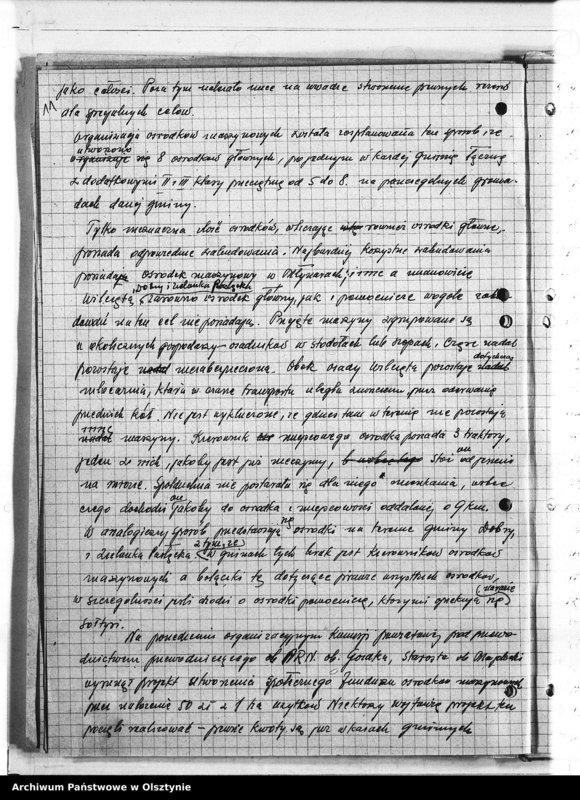 11
jako całości. Poza tym należało mieć na uwadze stworzenie pewnych rezerw
dla specjalnych celów.
Organizacja ośrodków maszynowych została rozplanowana ten sposób, że
utworzono
organizuje się 8 ośrodków głównych, po jednym w każdej gminie łącznie
z dodatkowymi II i III klasy przeciętnie od 5 do 8 na poszczególnych groma-
dach danej gminy.
Tylko nieznaczna ilość ośrodków, wliczając również ośrodki główne,
posiada odpowiednie zabudowania. Najbardziej korzystne zabudowania
posiada ośrodek maszynowy w Młynarach, inne a mianowicie
Dobry i Zielonka Pasłęcka
Wilczęta, zarówno ośrodek główny, jak i pomocnicze w ogóle zabu-
dowań na ten cel nie posiadają. Przyjęte maszyny zgrupowane są
u okolicznych gospodarzy osadników w stodołach lub szopach, część nadal
pozostaje niezabezpieczona. Obok osady Wilczęta pozostaje dotychczas
młocarnia, która w czasie transportu uległa zniszczeniu przez oderwanie
przednich kół. Nie jest wykluczone, że gdzieś tam w terenie nie pozostają
inne
maszyny. Kierownik miejscowego ośrodka posiada 3 traktory,
jeden z nich, jakoby jest już nieczynny, stoi on jesienią
na mrozie. Spółdzielnia nie postarała się dla niego o mieszkania, wobec
czego dochodzi on jakoby do ośrodka z miejscowości oddalonej o 9 km.
W analogiczny sposób przedstawiają się ośrodki na terenie gminy Dobry,
i Zielonka Pasłęcka z tym, że w gminach tych brak jest kierowników ośrodków
maszynowych a bolączki te dotyczące prawie wszystkich ośrodków,
w szczególności jeśli chodzi o ośrodki pomocnicze, którymi opiekują się
sołtysi.
Na posiedzeniu organizacyjnym Komisji powiatowej pod przewo-
dnictwem przewodniczącego PRN. ob. Gosdka, Starosta ob.
wysunął projekt utworzenia społecznego funduszu ośrodków maszynowych
przez nałożenie 50 zł z 1 ha użytków. Niektórzy wójtowie projekt ten
poczęli realizować – pewne kwoty są już w kasach gminnych
Archiwum Państwowe w Olsztynie